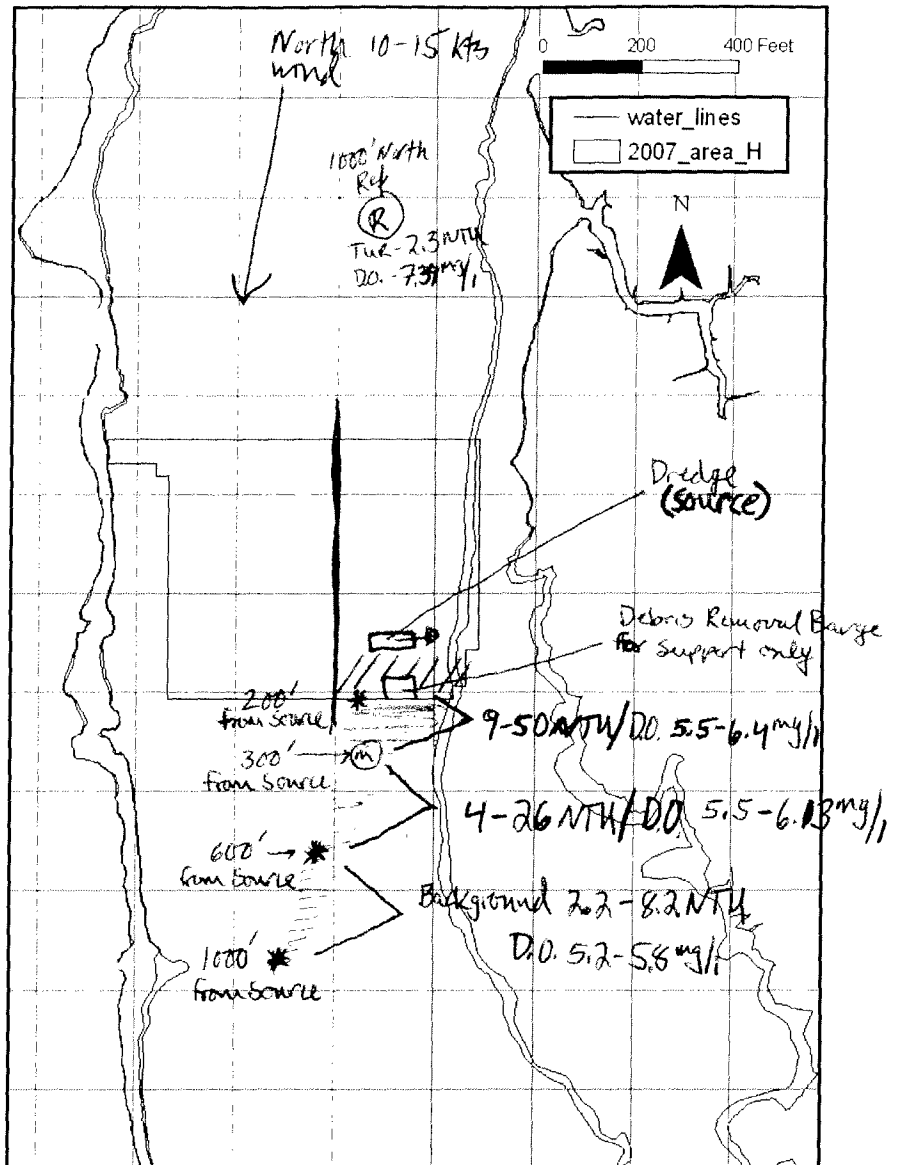 North 10-15 kts
wind
0 200 400 Feet
water_lines
2007_area_H
N
1000' North
Ref
R
TUR-2.3 NTU
D.O. -7.39 mg/l
Dredge
(source)
Debris Removal Barge
for support only
200'
from source
9-50 NTU/D.O. 5.5-6.4 mg/l
300'
from source
m
4-26 NTU/DO 5.5-6.13 mg/l
600'
from source
Background 2.2-8.2 NTU
D.O. 5.2-5.8 mg/l
1000'
from source